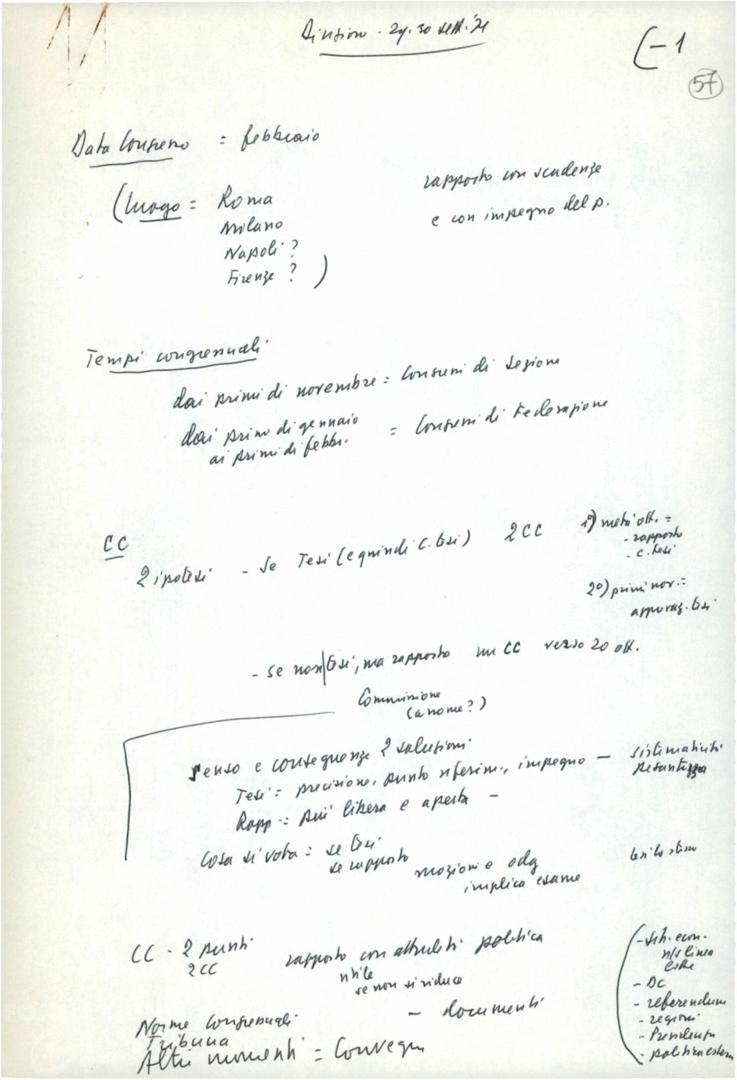 Direzione - 29.30 sett. '71
(-1
57
Data Congresso = febbraio
(luogo = Roma
Milano
Napoli ?
Firenze ? )
rapporto con scadenze
e con impegno del p.
Tempi congressuali
dai primi di novembre = Congressi di Sezione
dai primi di gennaio
ai primi di febbr. = Congressi di Federazione
CC
2 ipotesi - Se Tesi (e quindi C. tesi) 2 CC
1°) metà ott. =
- rapporto
- c. tesi
2°) primi nov. =
approvaz. tesi
- se non tesi, ma rapporto un CC verso 20 ott.
Commissione
(a nome ?)
Senso e conseguenze 2 soluzioni
Tesi = precisione, punto riferim., impegno - sistematicità
pesantezza
Rapp = più libera e aperta -
Cosa si vota = se tesi
se rapporto mozioni o odg
implica esame
CC - 2 punti
2 CC
rapporto con attualità politica
utile
se non si riduce
- documenti
Norme Congressuali
Tribuna
Altri momenti = Convegni
(- sit. econ.
n/s linea
- DC
- referendum
- regioni
- Presidenza
- politica estera